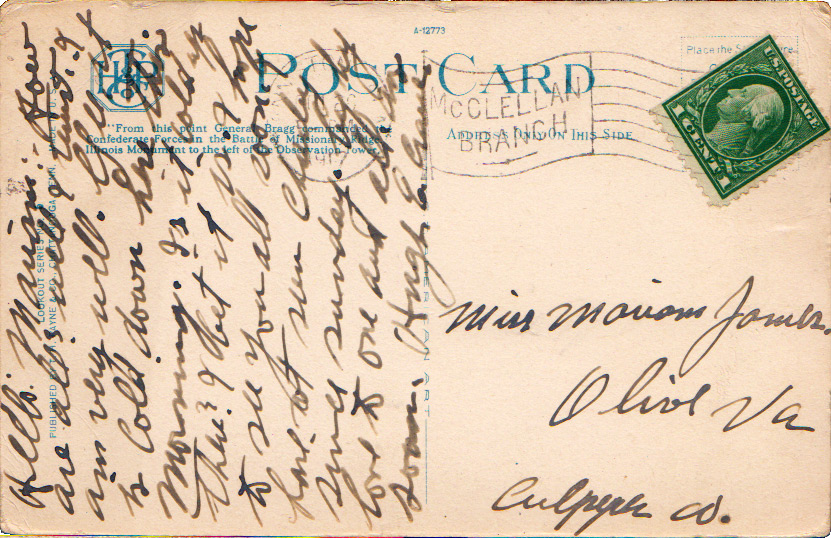 A-12773
POST CARD
"From this point General Bragg commanded the
Confederate Forces in the Battle of Missionary Ridge.
Illinois Monument to the left of the Observation Tower."
ADDRESS ONLY ON THIS SIDE
Place the Stamp Here
MCCLELLAN
BRANCH
1917
U.S. POSTAGE
1 CENT 1
LOOKOUT SERIES
PUBLISHED BY T. H. PAYNE & CO., CHATTANOOGA, TENN. MADE IN U.S.A.
Hello. Marion: How
are all well I trust. I
am very well. But it
is cold down here this
Morning. Is it cold up
there? I bet it is. I hope
to see you all soon.
have not seen Clyde
since sunday.
love to one and all
Hugh
Miss Marion James.
Olive Va
Culpeper Co.